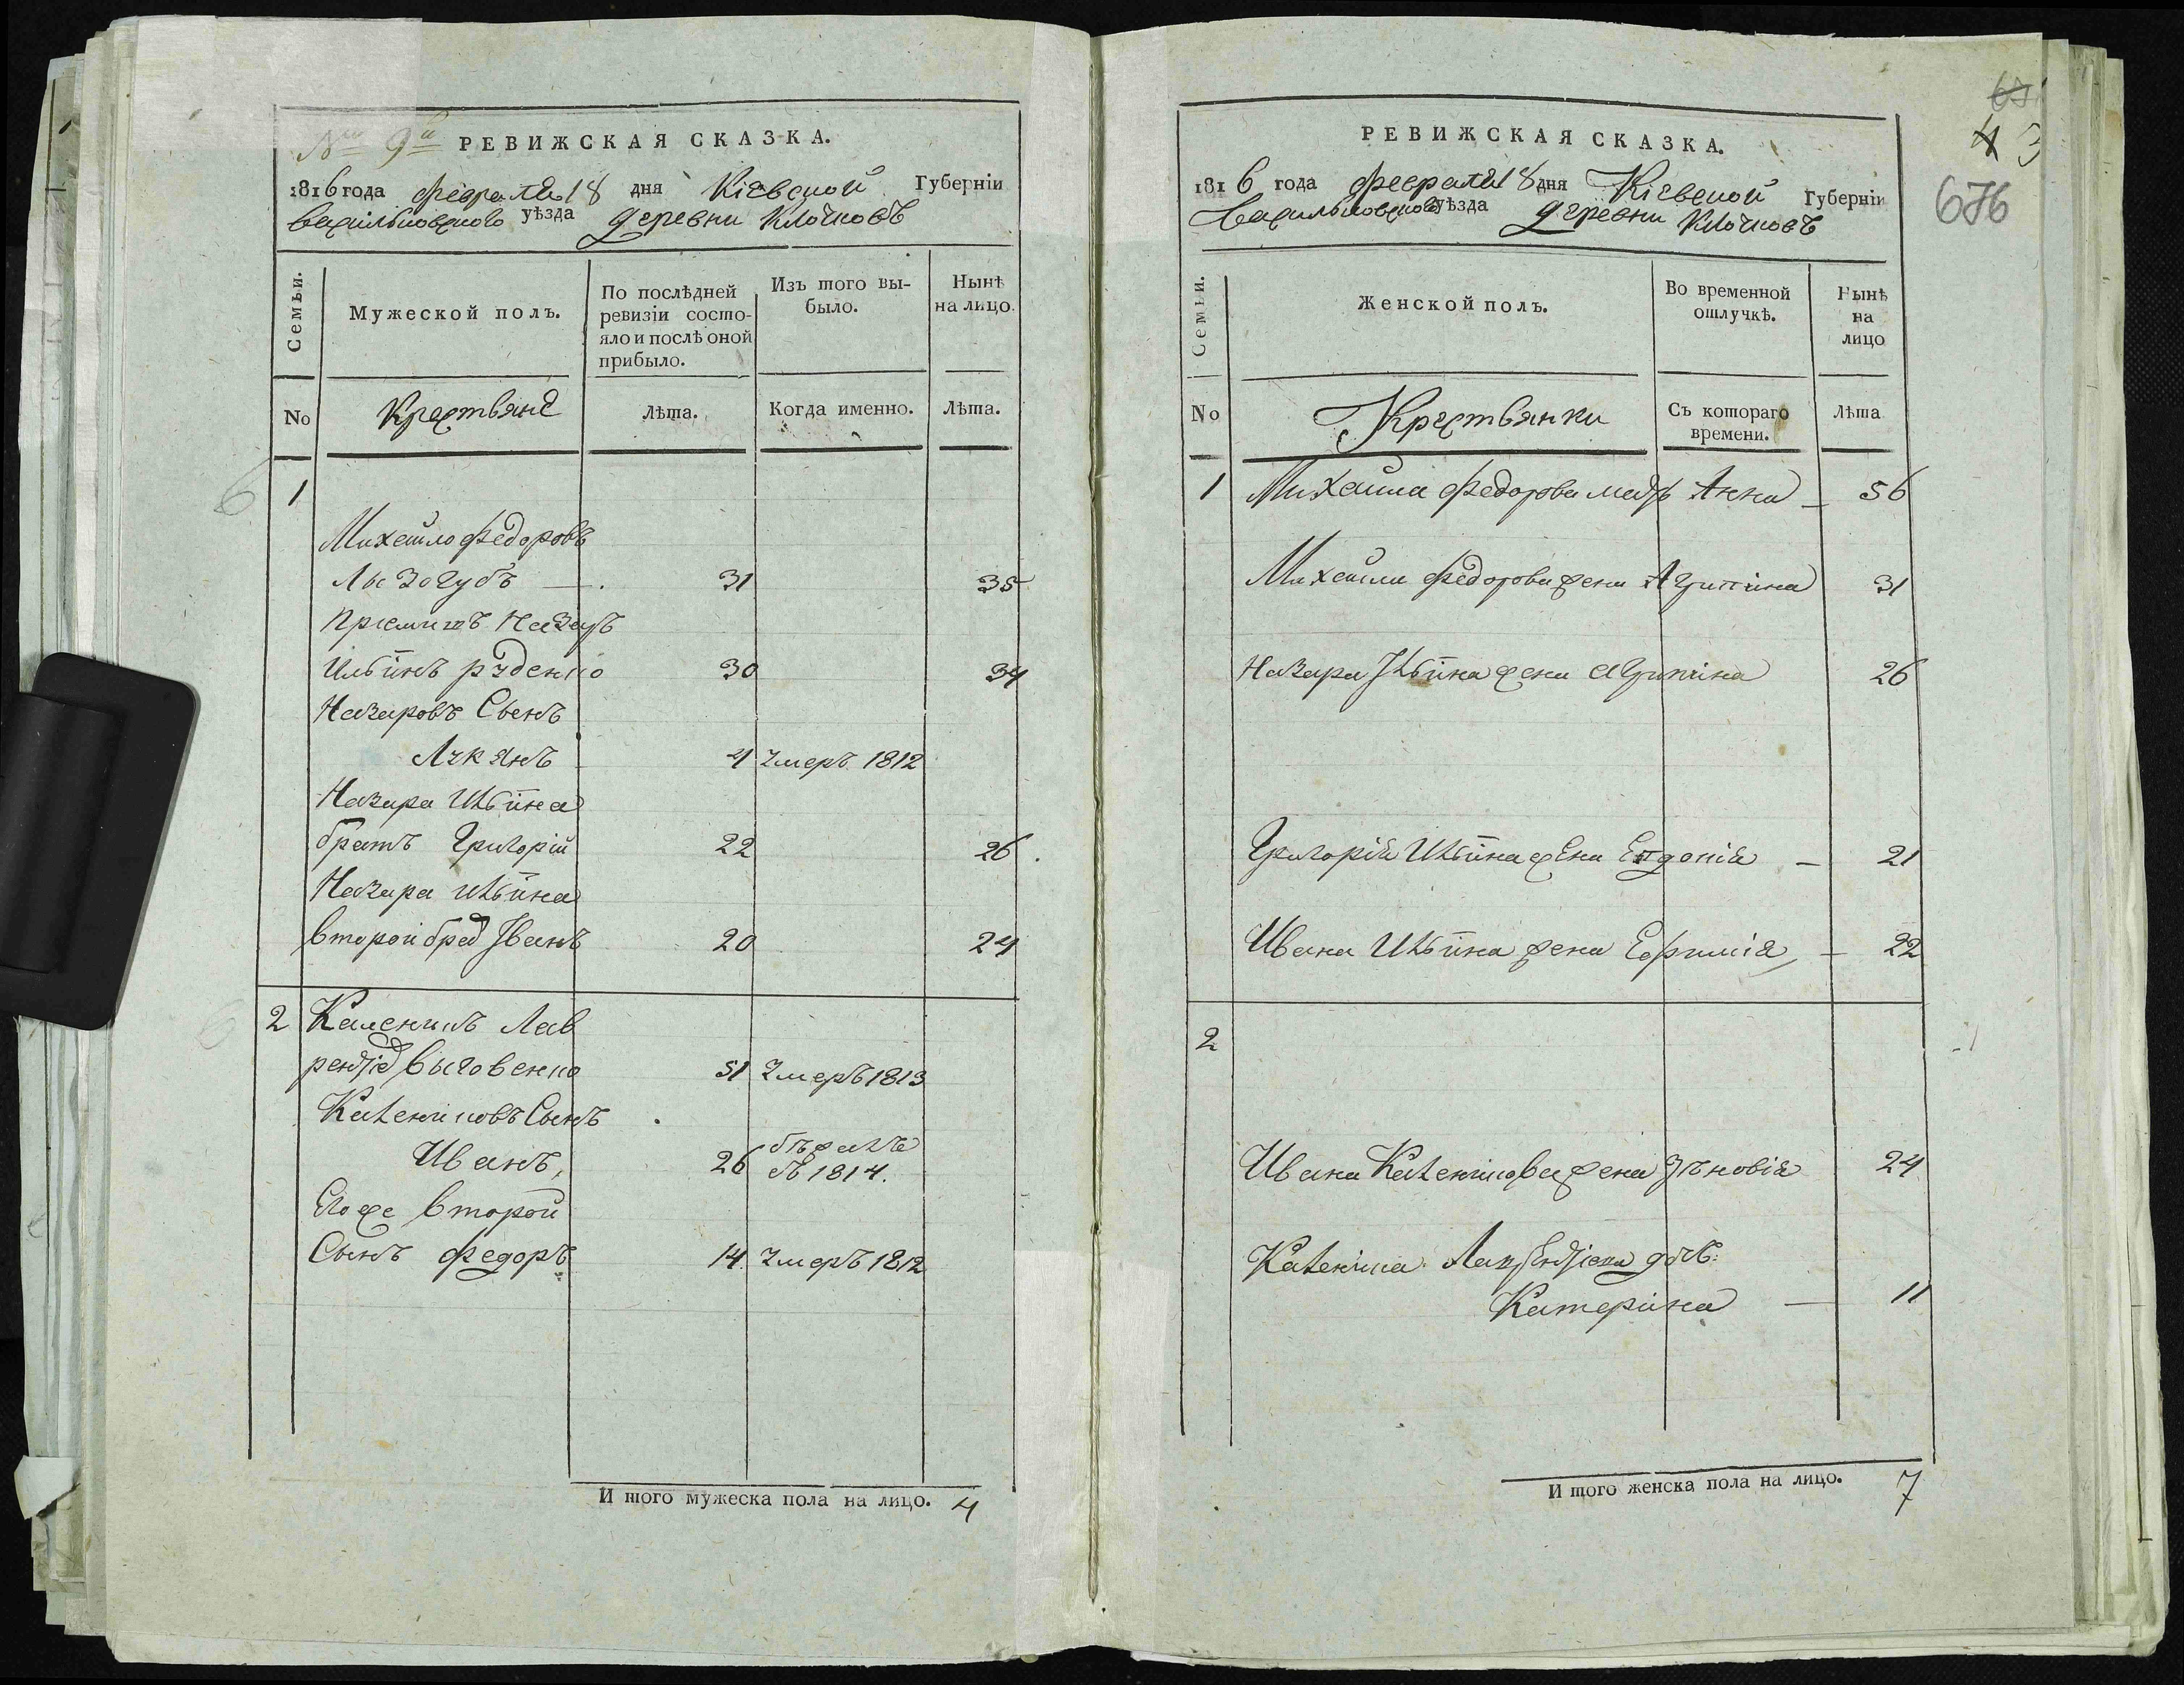 № 9й РЕВИЖСКАЯ СКАЗКА.
1816 года февраля 18 дня Кіевской Губерніи
васильковского уѣзда деревни Клочковъ
Семьи.
Мужеской полъ.
По послѣдней ревизіи состо-
яло и послѣ оной
прибыло.
Изъ того вы-
было.
Нынѣ
на лицо.
No
Крестьяне
Лѣта.
Когда именно.
Лѣта.
1
Михайло федоровъ
Лизогубъ — 31 35
Приймитъ Назаръ
Ильинъ руденко 30 34
Назаровъ Сынъ
Лукянъ 4 умеръ 1812
Назара Ильина
братъ Григорій 22 26.
Назара ильина
второй брат Іванъ 20 24
2 Каленикъ Лав
рентіев выговенко 51 умеръ 1813
Калениковъ Сынъ
Иванъ, 26 бѣжалъ
въ 1814.
Его же второй
Сынъ федоръ 14. умеръ 1812
И того мужеска пола на лицо. 4
РЕВИЖСКАЯ СКАЗКА.
3
676
1816 года февраля 18 дня Кіевской Губерніи
васильковского уѣзда деревни Клочковъ
Семьи.
Женской полъ.
Во временной
отлучкѣ.
Нынѣ
на
лицо
No
Крестьянки
Съ котораго
времени.
Лѣта
1 Михайла федорова мать Анна — 56
Михайла федорова жена Агрипина 31
Назара Ильина жена Агрипина 26
Григорія Ильина жена Евдокія — 21
Ивана Ильина жена Ефимія — 22
2
Ивана Каленикова жена Зѣновія 24
Каленика Лаврентіева дочь:
Катерина — 11
И того женска пола на лицо. 7